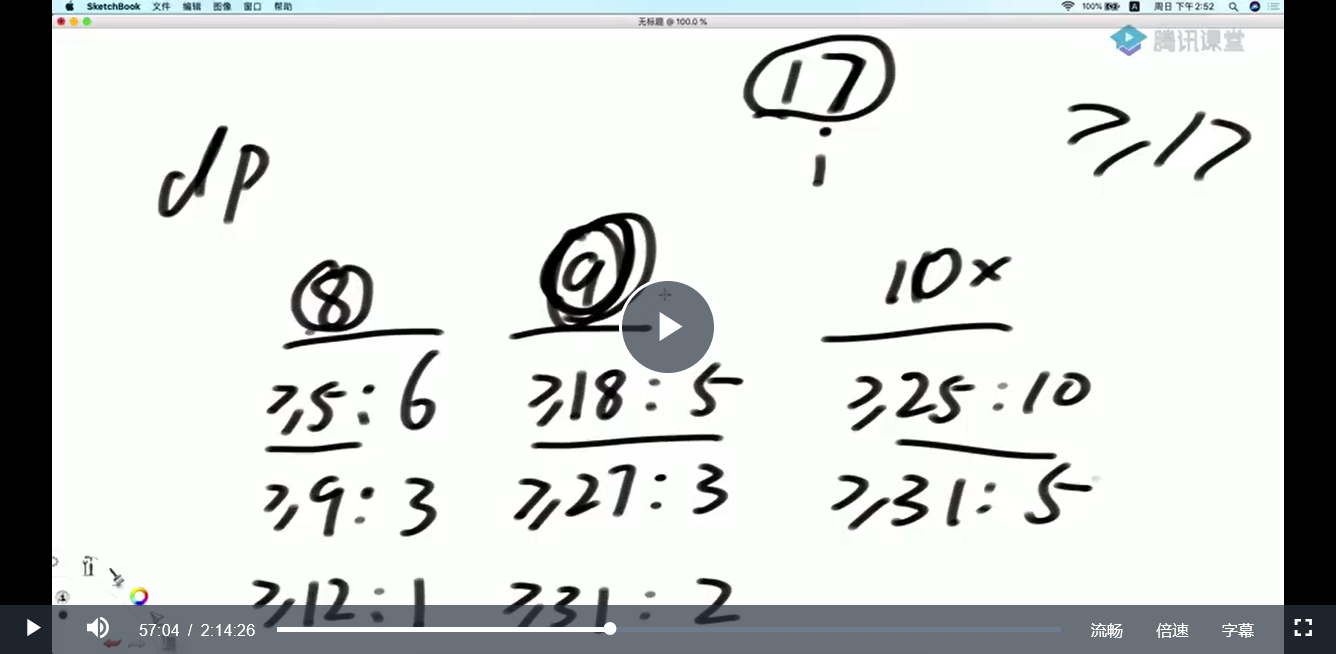 SketchBook 文件 编辑 图像 窗口 帮助 100% A 周日 下午2:52
无标题 @ 100.0 %
腾讯课堂
17
i
≥17
dp
8 9 10×
≥5:6 ≥18:5 ≥25:10
≥9:3 ≥27:3 ≥31:5
≥12:1 ≥31:2
57:04 / 2:14:26 流畅 倍速 字幕